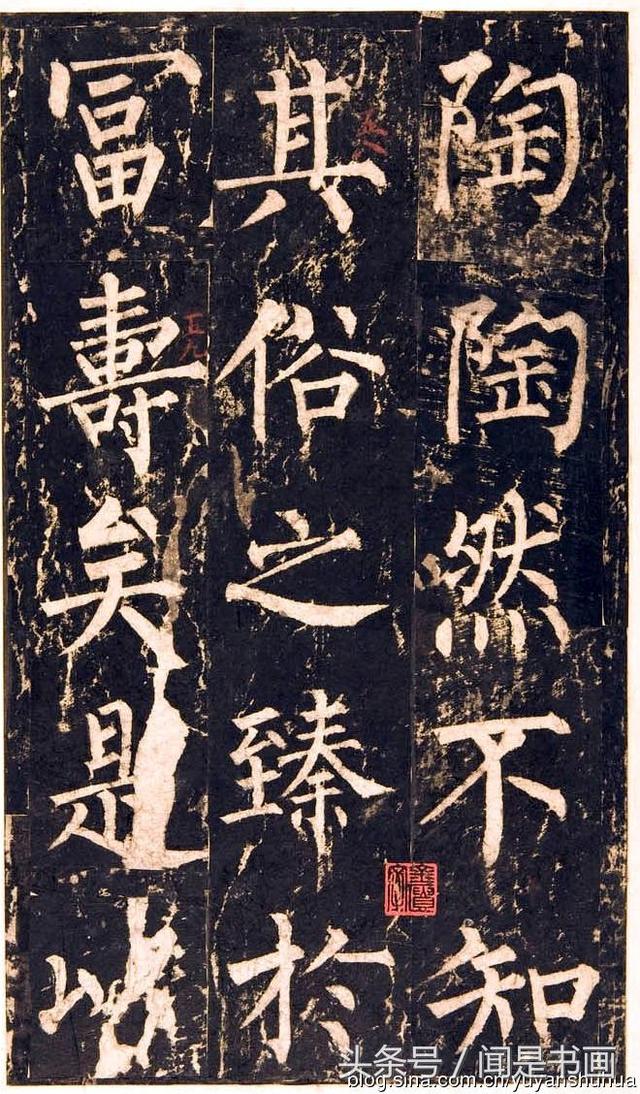 陶陶然不知
其俗之臻於
冨壽矣是
头条号 / 闻是书画
blog.sina.com.cn/yuyanshunua